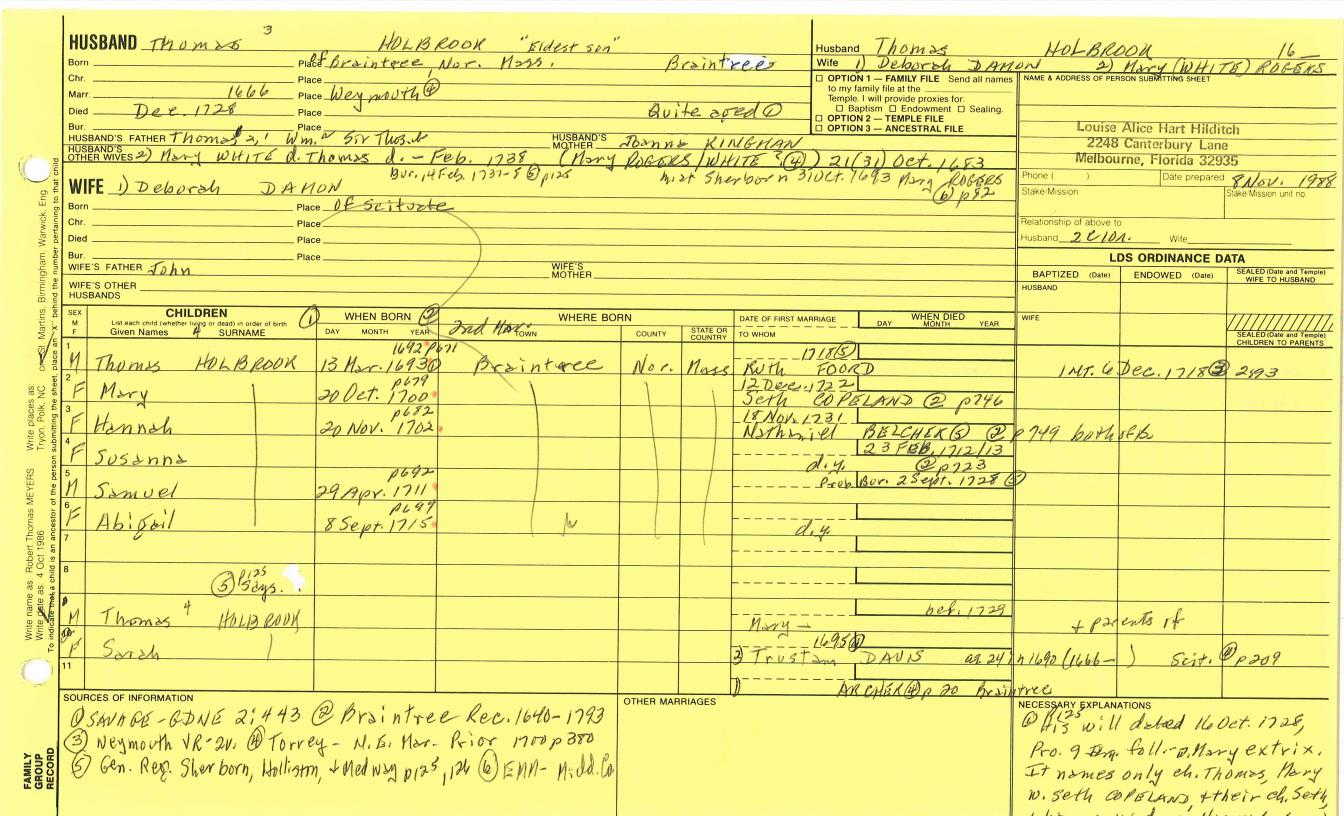 HUSBAND Thomas 3 HOLBROOK "Eldest son"
Born Place Of Braintree, Nor. Mass. Braintree
Chr. Place
Marr. 1666 Place Weymouth ④
Died Dec. 1728 Place Quite aged ①
Bur. Place
HUSBAND'S FATHER Thomas 2, 1 Wm. Sir Thos.
HUSBAND'S MOTHER Joanna KINGMAN
HUSBAND'S OTHER WIVES 2) Mary WHITE d. Thomas d. - Feb. 1738 (Mary ROGERS/WHITE? ④) 21(31) Oct. 1683
Bur. 14 Feb. 1737-8 ⑤ p125 m. at Sherborn 31 Oct. 1693 Mary ROGERS
⑥ p82
WIFE 1) Deborah DAMON
Born Place Of Scituate
Chr. Place
Died Place
Bur. Place
WIFE'S FATHER John
WIFE'S MOTHER
WIFE'S OTHER HUSBANDS
Husband Thomas HOLBROOK 16
Wife 1) Deborah DAMON 2) Mary (WHITE) ROGERS
OPTION 1 — FAMILY FILE Send all names
to my family file at the
Temple. I will provide proxies for:
Baptism Endowment Sealing.
OPTION 2 — TEMPLE FILE
OPTION 3 — ANCESTRAL FILE
NAME & ADDRESS OF PERSON SUBMITTING SHEET
Louise Alice Hart Hilditch
2248 Canterbury Lane
Melbourne, Florida 32935
Phone ( ) Date prepared 8 Nov. 1988
Stake/Mission Stake Mission unit no.
Relationship of above to
Husband Wife
LDS ORDINANCE DATA
BAPTIZED (Date) ENDOWED (Date) SEALED (Date and Temple) WIFE TO HUSBAND
HUSBAND
WIFE
SEALED (Date and Temple) CHILDREN TO PARENTS
SEX M F
CHILDREN ①
List each child (whether living or dead) in order of birth
Given Names 4 SURNAME
WHEN BORN ②
DAY MONTH YEAR
WHERE BORN
2nd Mar. TOWN COUNTY STATE OR COUNTRY
DATE OF FIRST MARRIAGE
TO WHOM
WHEN DIED
DAY MONTH YEAR
1 M Thomas HOLBROOK 1692 p671 13 Mar. 1693 ① Braintree Nor. Mass 1718 ⑤ Ruth FOORD INT. 6 Dec. 1718 ③ 2:93
2 F Mary p679 20 Oct. 1700 12 Dec. 1722 Seth COPELAND ② p746
3 F Hannah p682 20 Nov. 1702 18 Nov. 1731 Nathaniel BELCHER ⑤ ② p749 both of b
4 F Susanna 23 FEB. 1712/13 d.y. ② p723
5 M Samuel p692 29 Apr. 1711 Prob. Bur. 2 Sept. 1728 ⑤
6 F Abigail p699 8 Sept. 1715 d.y.
7
8 ⑤ p125 Says.
M Thomas 4 HOLBROOK bef. 1729 Mary - + parents if
F Sarah 1695 ④ 2) Trustam DAVIS ae. 24 in 1690 (1666- ) Scit. ④ p209
11 1) ARCHER ④ p 20 Braintree
SOURCES OF INFORMATION
① SAVAGE - GDNE 2:443 ② Braintree Rec. 1640-1793
③ Weymouth VR-2v. ④ Torrey - N.E. Mar. Prior 1700 p380
⑤ Gen. Reg. Sherborn, Holliston, + Medway p125, 126 ⑥ EMM - Midd. Co
OTHER MARRIAGES
NECESSARY EXPLANATIONS
⑤ p125 His will dated 16 Oct. 1728,
Pro. 9 foll. - w. Mary extrix.
It names only ch. Thomas, Mary
w. Seth COPELAND, + their ch. Seth,
FAMILY GROUP RECORD
Write name as: Robert Thomas MEYERS Write places as: Tryon, Polk, NC or St. Martins, Birmingham, Warwick, Eng.
Write date as: 4 Oct 1986
To indicate that a child is an ancestor of the person submitting the sheet, place an "X" behind the number pertaining to that child